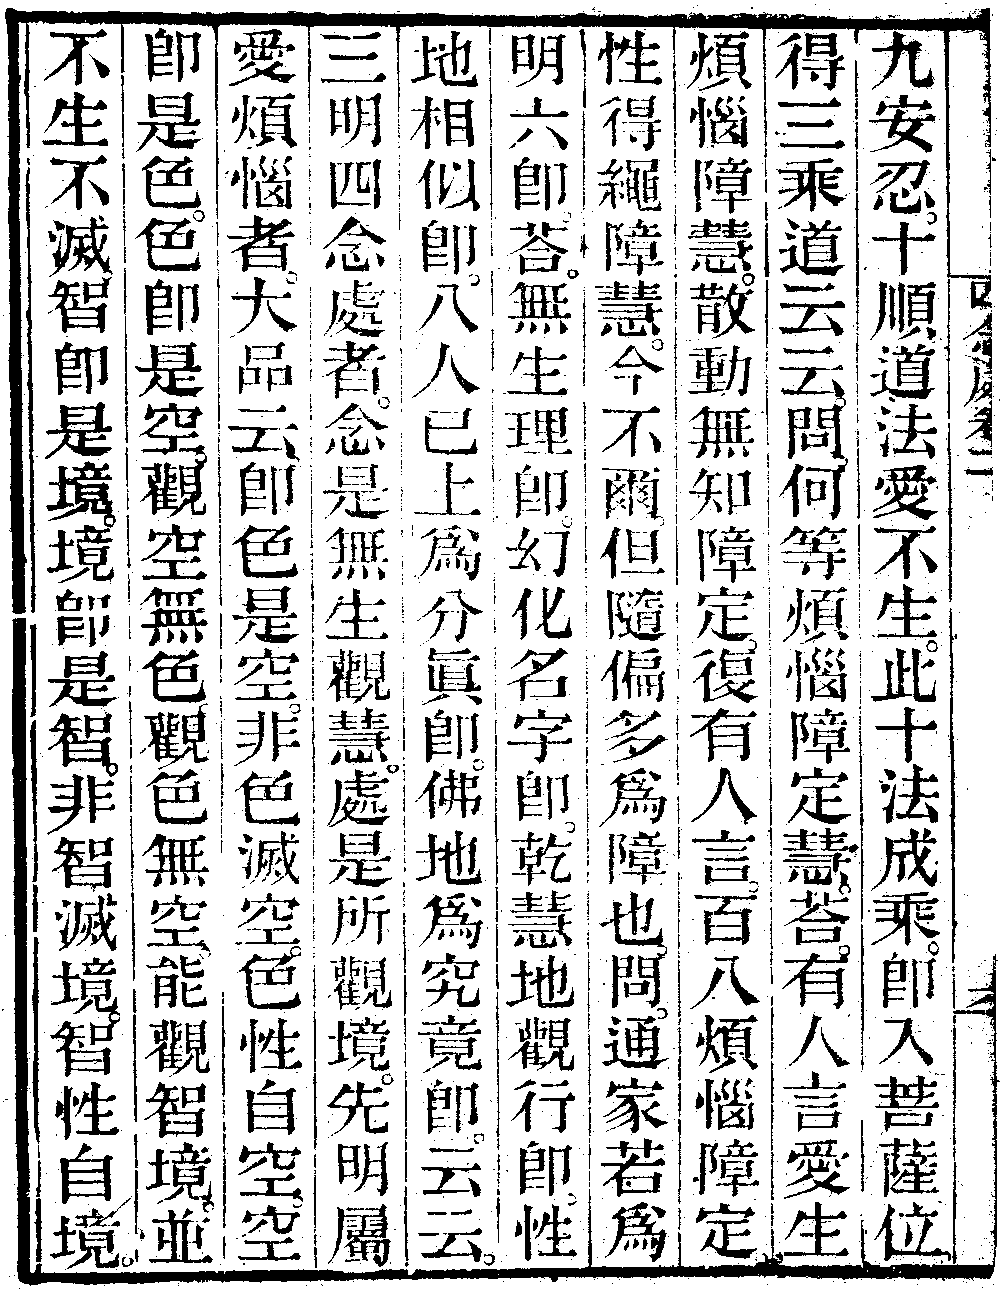 四念處卷二
九安忍。十順道法愛不生。此十法成乘。卽入菩薩位、
得三乘道云云。問。何等煩惱障定慧。荅。有人言愛生
煩惱障慧。散動無知障定。復有人言。百八煩惱障定、
性得繩障慧。今不爾。但隨偏多爲障也。問。通家若爲
明六卽。荅。無生理卽。幻化名字卽。乾慧地觀行卽。性
地相似卽。八人已上爲分眞卽。佛地爲究竟卽。云云。
三明四念處者。念是無生觀慧。處是所觀境。先明屬
愛煩惱者。大品云、卽色是空。非色滅空。色性自空。空
卽是色。色卽是空。觀空無色。觀色無空、能觀智境。並
不生不滅、智卽是境。境卽是智。非智滅境。智性自境。